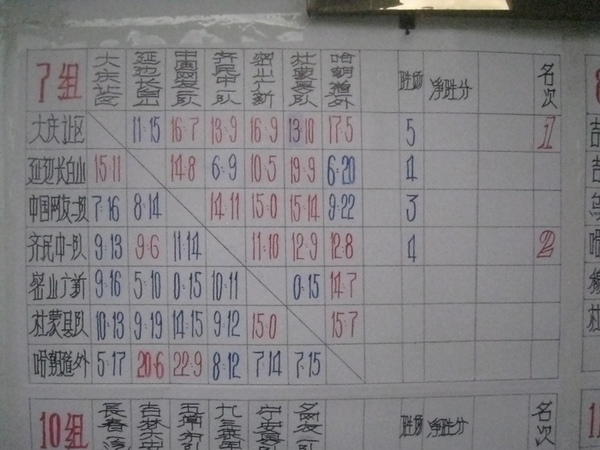 7组 大庆社区 延边长白山 中国网友一队 齐民中一队 密山广新 杜蒙县队 哈朝道外 胜场 净胜分 名次
大庆社区 11:15 16:7 13:9 16:9 13:10 17:5 5 1
延边长白山 15:11 14:8 6:9 10:5 19:9 6:20 4
中国网友一队 7:16 8:14 14:11 15:0 15:14 9:22 3
齐民中一队 9:13 9:6 11:14 11:10 12:9 12:8 4 2
密山广新 9:16 5:10 0:15 10:11 0:15 14:7
杜蒙县队 10:13 9:19 14:15 9:12 15:0 15:7
哈朝道外 5:17 20:6 22:9 8:12 7:14 7:15
10组 胜场 净胜分 名次